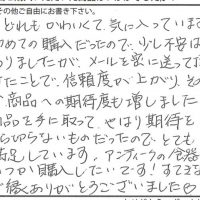 その他ご自由にお書き下さい。
どれもかわいくて、気に入っています
めての購入だったので、少し不安は
りましたが、メールを密に送って
たことで、信頼度が上がり、そ
商品への期待度も増しました
品を手に取って、やはり期待を
らないものだったので、とても
満足しています。アンティークの食器
購入したいです!すてきな
ご縁ありがとうございました